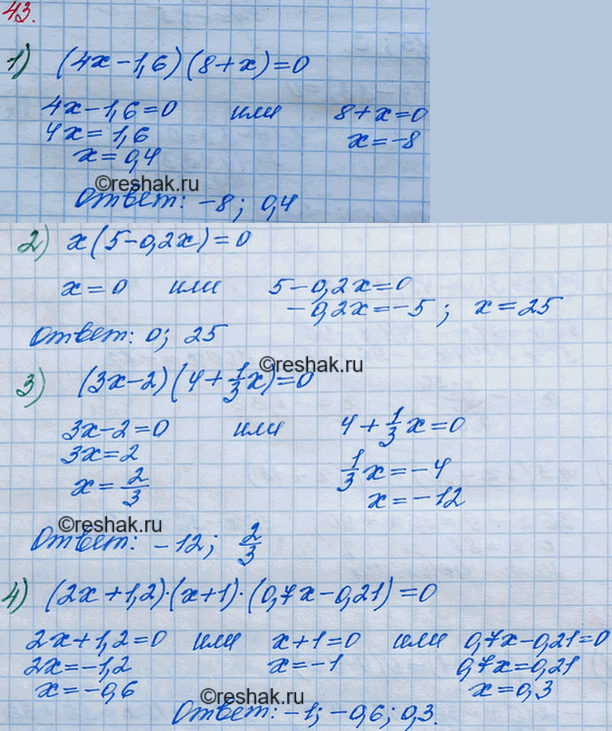 43.
1) (4x-1,6)(8+x)=0
4x-1,6=0 или 8+x=0
4x=1,6 x=-8
x=0,4
©reshak.ru
Ответ: -8; 0,4
2) x(5-0,2x)=0
x=0 или 5-0,2x=0
-0,2x=-5; x=25
Ответ: 0; 25
©reshak.ru
3) (3x-2)(4+1/3x)=0
3x-2=0 или 4+1/3x=0
3x=2 1/3x=-4
x=2/3 x=-12
©reshak.ru
Ответ: -12; 2/3
4) (2x+1,2)·(x+1)·(0,7x-0,21)=0
2x+1,2=0 или x+1=0 или 0,7x-0,21=0
2x=-1,2 x=-1 0,7x=0,21
x=-0,6 x=0,3
©reshak.ru
Ответ: -1; -0,6; 0,3.